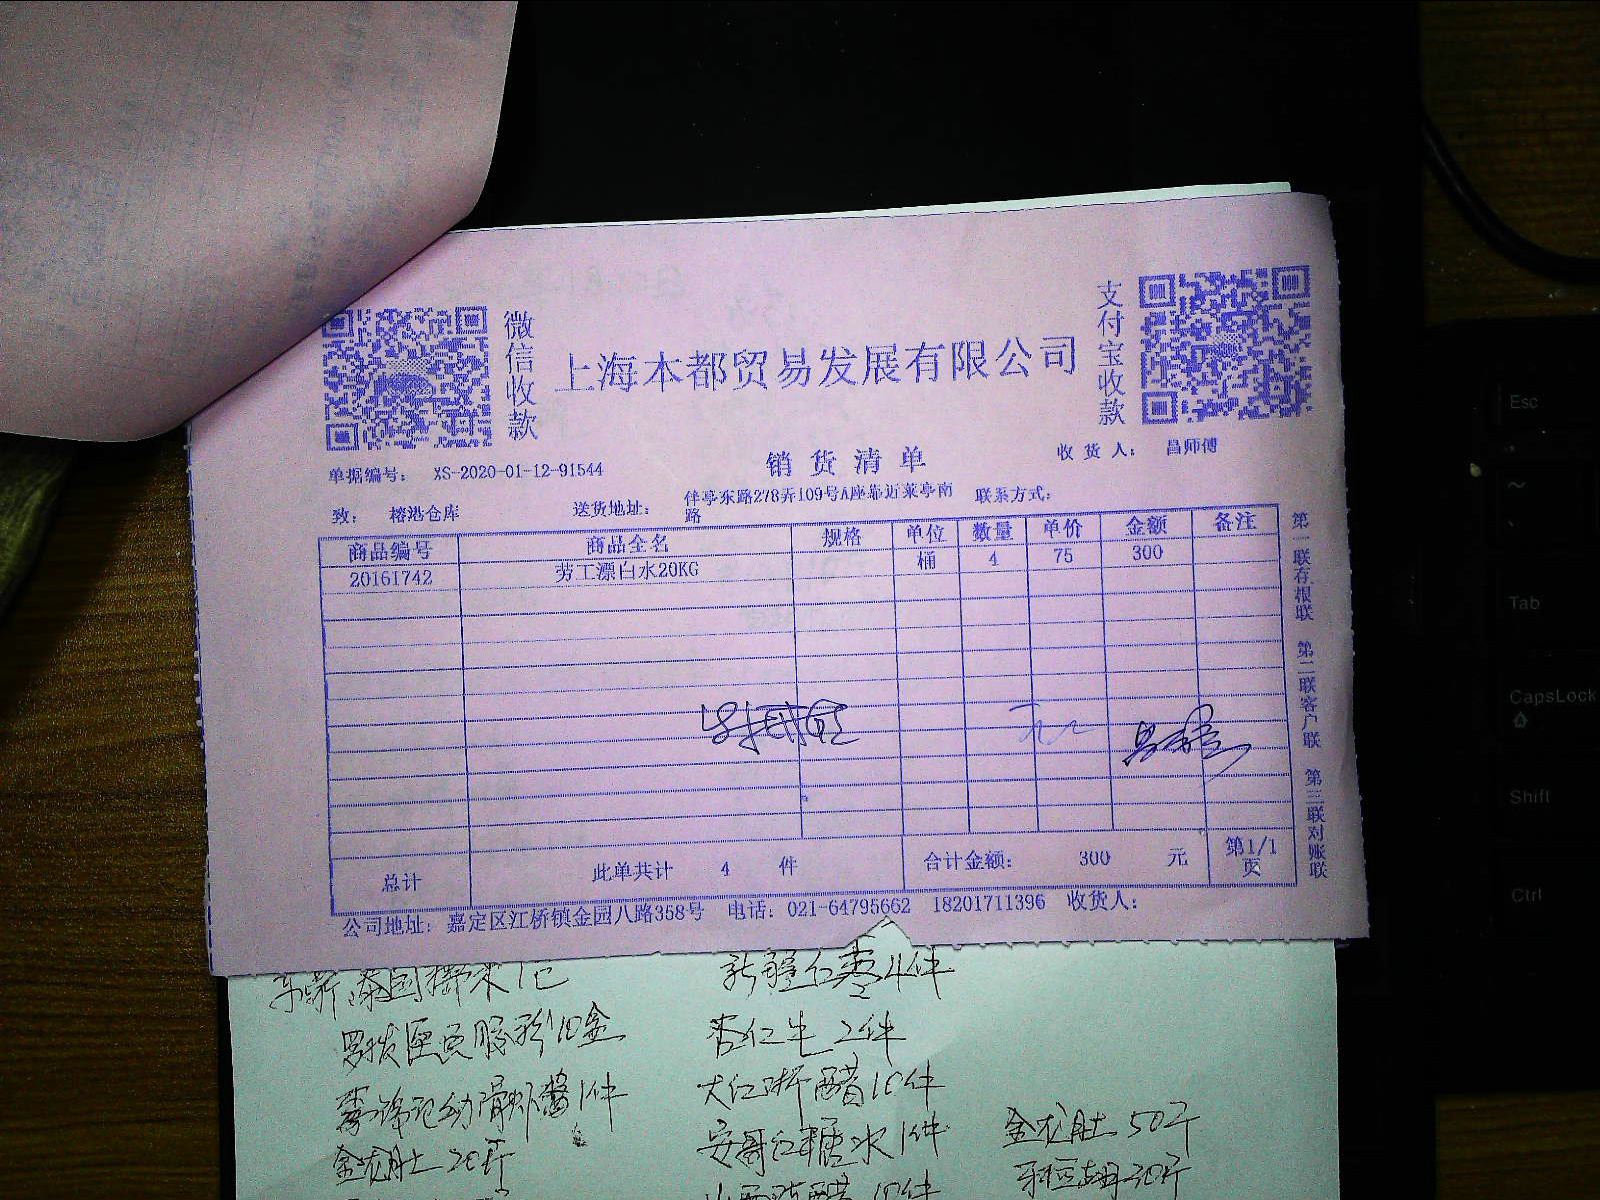 微信收款
上海本都贸易发展有限公司
支付宝收款
销货清单
单据编号： XS-2020-01-12-91544
收货人： 昌师傅
致： 榕港仓库
送货地址： 伴亭东路278弄109号A座靠近莱亭南路
联系方式：
商品编号 商品全名 规格 单位 数量 单价 金额 备注
20161742 劳工漂白水20KG 桶 4 75 300
总计 此单共计 4 件 合计金额： 300 元 第1/1页
公司地址： 嘉定区江桥镇金园八路358号 电话：021-64795662 18201711396 收货人：
第一联存根联 第二联客户联 第三联对账联
新疆红枣4件
杏仁 2件
大红浙醋10件
金龙 20斤
1件
金龙 50斤
10件
Esc
Tab
CapsLock
Shift
Ctrl